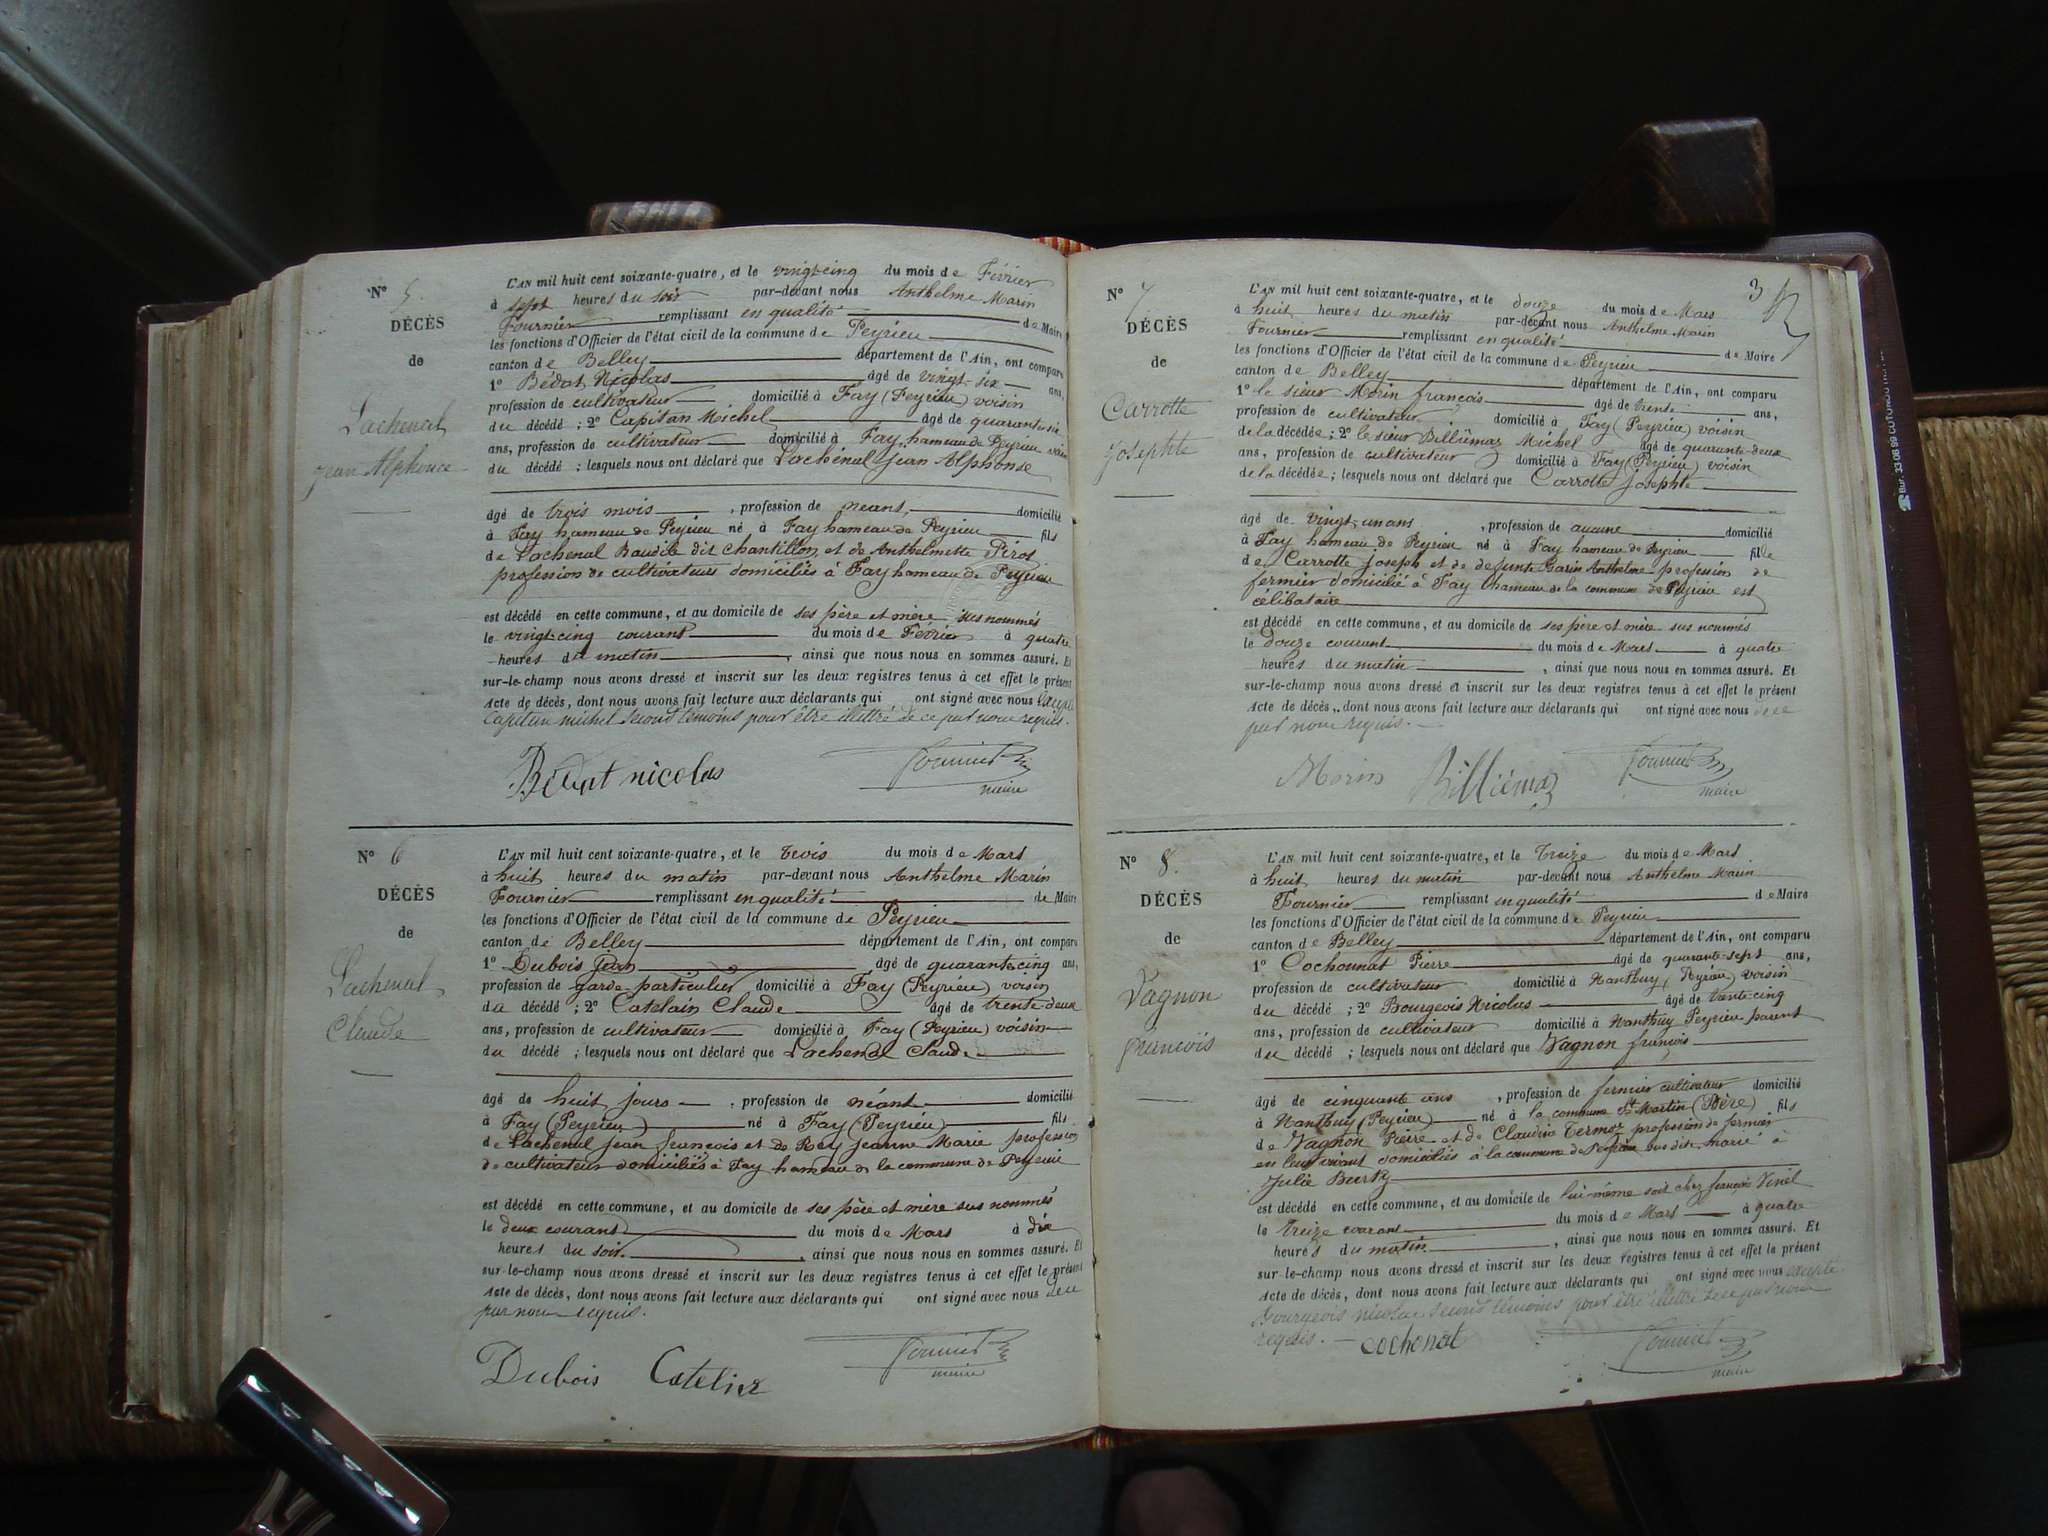 N° 5.
DÉCÈS
de
Lachenal
Jean Alphonce
L'AN mil huit cent soixante-quatre, et le vingt-cinq du mois de Février
à sept heures du soir par-devant nous Anthelme Marin
Fournier remplissant en qualité de Maire
les fonctions d'Officier de l'état civil de la commune de Peyrieu
canton de Belley département de l'Ain, ont comparu
1° Bédat Nicolas âgé de vingt-six ans,
profession de cultivateur domicilié à Fay (Peyrieu) voisin
du décédé ; 2° Capitan Michel âgé de quarante-six
ans, profession de cultivateur domicilié à Fay, hameau de Peyrieu voisin
du décédé ; lesquels nous ont déclaré que Lachénal Jean Alphonse
âgé de trois mois, profession de néant, domicilié
à Fay hameau de Peyrieu né à Fay hameau de Peyrieu fils
de Lachenal Baudile dit Chantillon, et de Anthelmette Piros
profession de cultivateurs domiciliés à Fay hameau de Peyrieu
est décédé en cette commune, et au domicile de ses père et mère sus nommés
le vingt-cinq courant du mois de Février à quatre
heures du matin, ainsi que nous nous en sommes assuré. Et
sur-le-champ nous avons dressé et inscrit sur les deux registres tenus à cet effet le présent
Acte de décès, dont nous avons fait lecture aux déclarants qui ont signé avec nous excepté
Capitan michel second témoins pour être illettré de ce par nous requis.
Bédat nicolas Fournier
maire
N° 6
DÉCÈS
de
Lachenal
Claude
L'AN mil huit cent soixante-quatre, et le trois du mois de Mars
à huit heures du matin par-devant nous Anthelme Marin
Fournier remplissant en qualité de Maire
les fonctions d'Officier de l'état civil de la commune de Peyrieu
canton de Belley département de l'Ain, ont comparu
1° Dubois Jean âgé de quarante-cinq ans,
profession de garde-particulier domicilié à Fay (Peyrieu) voisin
du décédé ; 2° Catelain Claude âgé de trente-deux
ans, profession de cultivateur domicilié à Fay (Peyrieu) voisin
du décédé ; lesquels nous ont déclaré que Lachenal Claude
âgé de huit jours, profession de néant domicilié
à Fay (Peyrieu) né à Fay (Peyrieu) fils
de Lachenal Jean François et de Rey Jeanne Marie profession
de cultivateur domiciliés à Fay hameau de la commune de Peyrieu
est décédé en cette commune, et au domicile de ses père et mère sus nommés
le deux courant du mois de Mars à dix
heures du soir, ainsi que nous nous en sommes assuré. Et
sur-le-champ nous avons dressé et inscrit sur les deux registres tenus à cet effet le présent
Acte de décès, dont nous avons fait lecture aux déclarants qui ont signé avec nous de ce
par nous requis.
Dubois Catelin Fournier
maire
3
N° 7
DÉCÈS
de
Carrotte
Josephte
L'AN mil huit cent soixante-quatre, et le douze du mois de Mars
à huit heures du matin par-devant nous Anthelme Marin
Fournier remplissant en qualité de Maire
les fonctions d'Officier de l'état civil de la commune de Peyrieu
canton de Belley département de l'Ain, ont comparu
1° le sieur Morin françois âgé de trente ans,
profession de cultivateur domicilié à Fay (Peyrieu) voisin
de la décédée ; 2° le sieur Billiémaz Michel âgé de quarante-deux
ans, profession de cultivateur domicilié à Fay (Peyrieu) voisin
de la décédée ; lesquels nous ont déclaré que Carrotte Josephte
âgé de vingt-un ans, profession de aucune domicilié
à Fay hameau de Peyrieu né à Fay hameau de Peyrieu fille
de Carrotte Joseph et de defunte Garin Anthelme profession de
fermier domicilié à Fay (hameau de la commune de Peyrieu est
célibataire
est décédé en cette commune, et au domicile de ses père et mère sus nommés
le douze courant du mois de Mars à quatre
heures du matin, ainsi que nous nous en sommes assuré. Et
sur-le-champ nous avons dressé et inscrit sur les deux registres tenus à cet effet le présent
Acte de décès, dont nous avons fait lecture aux déclarants qui ont signé avec nous de ce
par nous requis.
Morin Billiémaz Fournier
maire
N° 8.
DÉCÈS
de
Vagnon
françois
L'AN mil huit cent soixante-quatre, et le treize du mois de Mars
à huit heures du matin par-devant nous Anthelme Marin
Fournier remplissant en qualité de Maire
les fonctions d'Officier de l'état civil de la commune de Peyrieu
canton de Belley département de l'Ain, ont comparu
1° Cochonnat Pierre âgé de quarante-sept ans,
profession de cultivateur domicilié à Nanthuy (Peyrieu) voisin
du décédé ; 2° Bourgeois Nicolas âgé de trente-cinq
ans, profession de cultivateur domicilié à Nanthuy Peyrieu parent
du décédé ; lesquels nous ont déclaré que Vagnon françois
âgé de cinquante ans, profession de fermier cultivateur domicilié
à Nanthuy (Peyrieu) né à la commune St Martin (Isère) fils
de Vagnon Pierre et de Claudia Termoz profession de fermier
en leur vivant domiciliés à la commune de Peyrieu sus dite, marié à
Julie Burtz
est décédé en cette commune, et au domicile de lui-même soit chez françois Vinel
le treize courant du mois de Mars à quatre
heures du matin, ainsi que nous nous en sommes assuré. Et
sur-le-champ nous avons dressé et inscrit sur les deux registres tenus à cet effet le présent
Acte de décès, dont nous avons fait lecture aux déclarants qui ont signé avec nous excepté
Bourgeois nicolas second témoins pour être illettré de ce par nous
requis. cochonat Fournier
maire